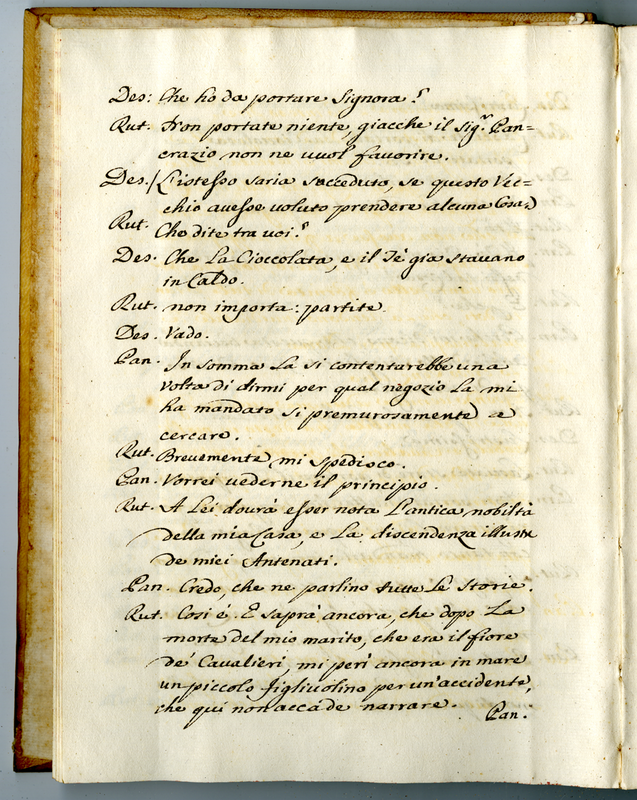 Des: Che ho da portare Signora?
Rut. Non portate niente, giacche il Sig.r Pan=
crazio non ne vuol favorire.
Des. /L'istesso saria succeduto, se questo Vec=
chio avesse voluto prendere alcuna Cosa)
Rut. Che dite tra voi?
Des. Che La Cioccolata, e il Tè già stavano
in Caldo.
Rut. non importa: partite.
Des. Vado.
Pan. In somma La si contentarebbe una
volta di dirmi per qual negozio La mi
ha mandato si premurosamente a
cercare.
Rut. Brevemente mi spedisco.
Pan. Vorrei vederne il principio.
Rut. A Lei dovrà esser nota L'antica nobiltà
della mia Casa, e La discendenza illustre
de miei Antenati.
Pan. Credo, che ne parlino tutte Le Storie.
Rut. Così é. E saprà ancora, che dopo La
morte del mio marito, che era il fiore
de' Cavalieri, mi perì ancora in mare
un piccolo figliuolino per un'accidente,
che quì non accade narrare.
Pan.